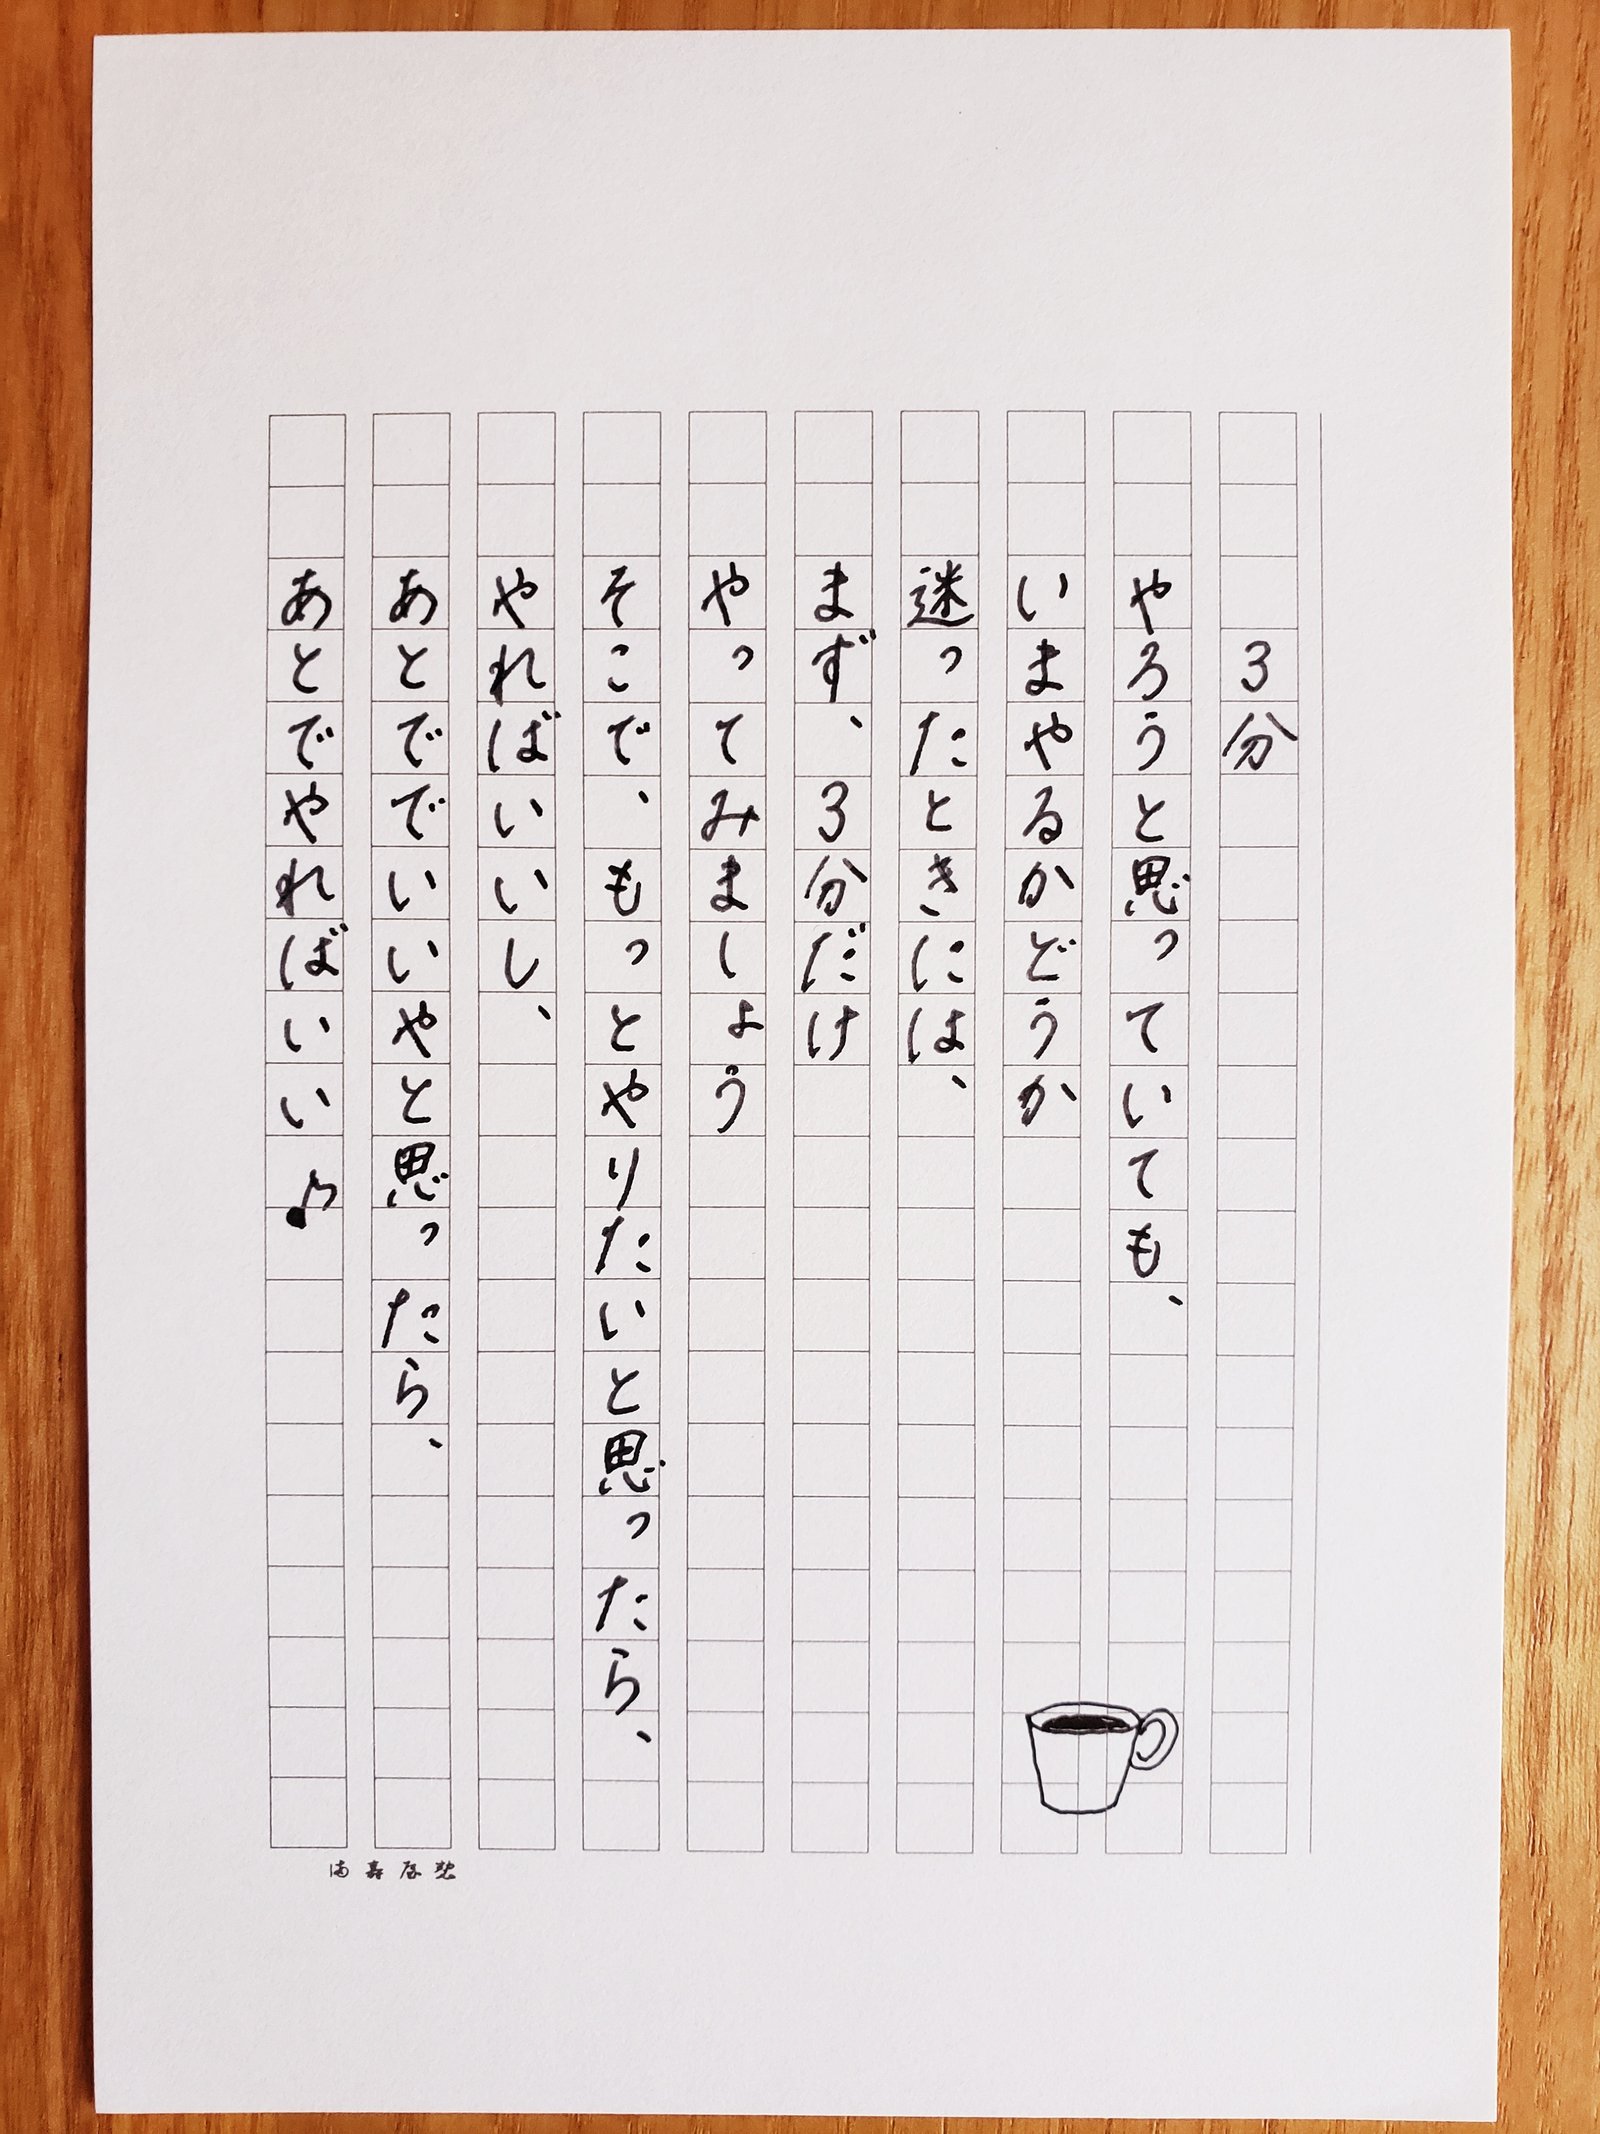 3分
やろうと思っていても、
いまやるかどうか
迷ったときには、
まず、3分だけ
やってみましょう
そこで、もっとやりたいと思ったら、
やればいいし、
あとででいいやと思ったら、
あとでやればいい♪